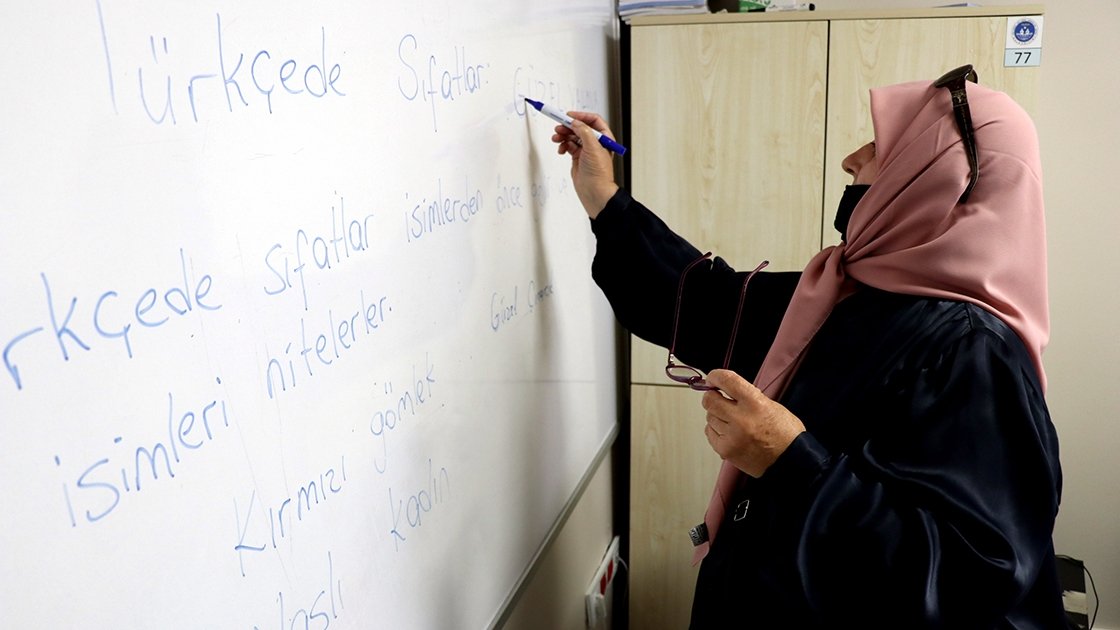 Türkçede Sıfatlar: GÜZEL
rkçede sıfatlar isimlerden önce
isimleri nitelerler.
Güzel
Kırmızı gömlek
kadın
77